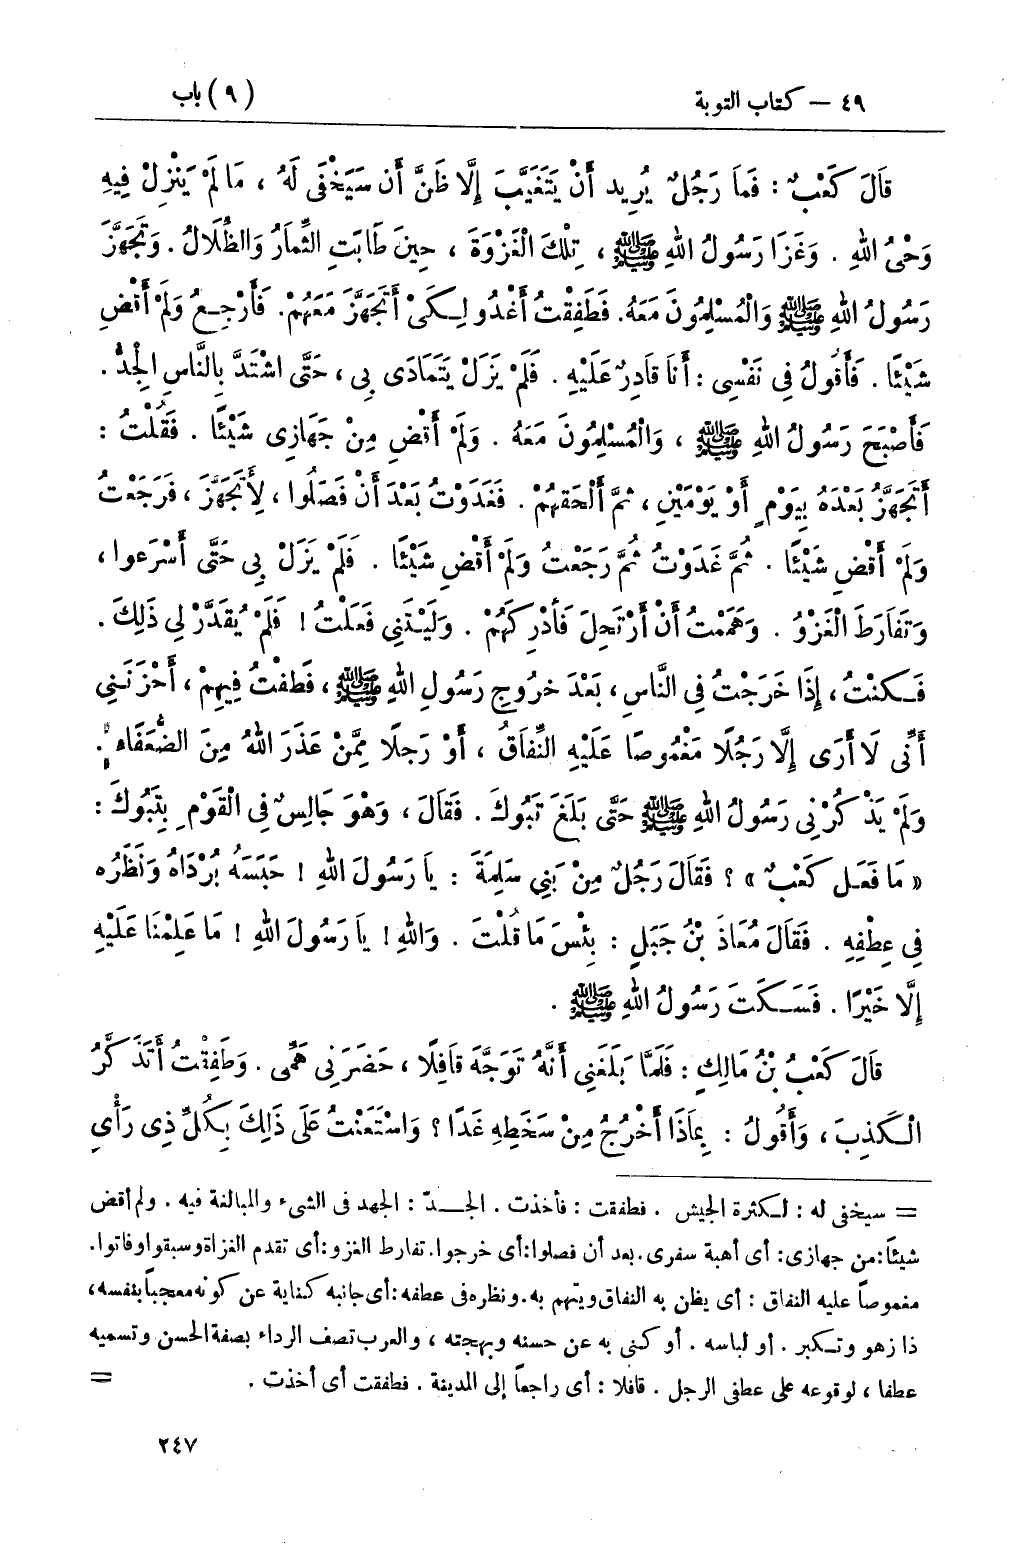 ٤٩ – كتاب التوبة
(٩) باب
قَالَ كَعْبٌ : فَمَا رَجُلٌ يُرِيد أَنْ يَتَغَيَّبَ إِلَّا ظَنَّ أَن سَيَخْفَى لَهُ ، مَا لَمْ يَنْزِلْ فِيهِ
وَحْىُ اللهِ . وَغَزَا رَسُولُ اللهِ ﷺ ، تِلْكَ الْغَزْوَةَ ، حِينَ طَابَتِ الثِّمَارُ وَالظِّلَالُ . وَتَجَهَّزَ
رَسُولُ اللهِ ﷺ وَالْمُسْلِمُونَ مَعَهُ. فَطَفِقْتُ أَغْدُو لِكَىْ أَتَجَهَّزَ مَعَهُمْ. فَأَرْجِعُ وَلَمْ أَقْضِ
شَيْئًا . فَأَقُولُ فِى نَفْسِى : أَنَا قَادِرٌ عَلَيْهِ . فَلَمْ يَزَلْ يَتَمَادَى بِى ، حَتَّى اشْتَدَّ بِالنَّاسِ الْجِدُّ .
فَأَصْبَحَ رَسُولُ اللهِ ﷺ ، وَالْمُسْلِمُونَ مَعَهُ . وَلَمْ أَقْضِ مِنْ جَهَازِى شَيْئًا . فَقُلْتُ :
أَتَجَهَّزُ بَعْدَهُ بِيَوْمٍ أَوْ يَوْمَيْنِ ، ثُمَّ أَلْحَقُهُمْ . فَغَدَوْتُ بَعْدَ أَنْ فَصَلُوا ، لِأَتَجَهَّزَ ، فَرَجَعْتُ
وَلَمْ أَقْضِ شَيْئًا . ثُمَّ غَدَوْتُ ثُمَّ رَجَعْتُ وَلَمْ أَقْضِ شَيْئًا . فَلَمْ يَزَلْ بِى حَتَّى أَسْرَعوا ،
وَتَفَارَطَ الْغَزْوُ . وَهَمَمْتُ أَنْ أَرْتَحِلَ فَأُدْرِكَهُمْ . وَلَيْتَنِى فَعَلْتُ ! فَلَمْ يُقَدَّرْ لِى ذَلِكَ .
فَكُنْتُ ، إِذَا خَرَجْتُ فِى النَّاسِ ، بَعْدَ خرُوجِ رَسُولِ اللهِ ﷺ ، فَطُفْتُ فِيهِمْ ، أَحْزَنَنِى
أَنِّى لَا أَرَى إِلَّا رَجُلًا مَغْمُوصًا عَلَيْهِ النِّفَاقُ ، أَوْ رَجلًا مِمَّنْ عَذَرَ اللهُ مِنَ الضُّعَفَاءِ .
وَلَمْ يَذْكُرْنِى رَسُولُ اللهِ ﷺ حَتَّى بَلَغَ تَبُوكَ . فَقَالَ ، وَهْوَ جَالِسٌ فِى الْقَوْمِ بِتَبُوكَ :
« مَا فَعَلَ كَعْبٌ » ؟ فَقَالَ رَجُلٌ مِنْ بَنِى سَلِمَةَ : يَا رَسُولَ اللهِ ! حَبَسَهُ بُرْدَاهُ وَنَظَرُه
فِى عِطْفِهِ . فَقَالَ مُعَاذَ بْنُ جَبَلٍ : بِئْسَ مَا قُلْتَ . وَاللهِ ! يَا رَسُولَ اللهِ ! مَا عَلِمْنَا عَلَيْهِ
إِلَّا خَيْرًا . فَسَكَتَ رَسُولُ اللهِ ﷺ .
قَالَ كَعْبُ بْنُ مَالِكٍ : فَلَمَّا بَلَغَنِى أَنَّهُ تَوَجَّهَ قَافِلًا ، حَضَرَنِى هَمِّى . وَطَفِقْتُ أَتَذَكَّرُ
الْكَذِبَ ، وَأَقُولُ : بِمَاذَا أَخْرُجُ مِنْ سَخَطِهِ غَدًا ؟ وَاسْتَعَنْتُ عَلَى ذَلِكَ بِكُلِّ ذِى رَأْىٍ
= سيخفى له : لكثرة الجيش . فطفقت : فأخذت . الجــد : الجهد فى الشىء والمبالغة فيه . ولم أقض
شيئاً:من جهازى: أى أهبة سفرى.بعد أن فصلوا:أى خرجوا.تفارط الغزو:أى تقدم الغزاة وسبقوا وفاتوا.
مغموصاً عليه النفاق : أى يظن به النفاق ويتهم به.ونظره فى عطفه:أى جانبه كناية عن كونه معجباً بنفسه،
ذا زهو وتكبر . أو لباسه . أو كنى به عن حسنه وبهجته ، والعرب تصف الرداء بصفة الحسن وتسميه
عطفا ، لوقوعه على عطفى الرجل . قافلا : أى راجعاً إلى المدينة . فطفقت أى أخذت . =
٢٤٧